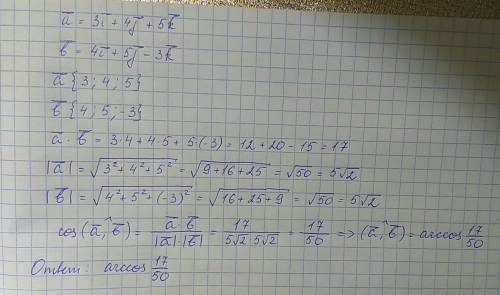 a̅ = 3i̅ + 4j̅ + 5k̅
b̅ = 4i̅ + 5j̅ - 3k̅
a̅ {3; 4; 5}
b̅ {4; 5; -3}
a̅ · b̅ = 3·4 + 4·5 + 5·(-3) = 12 + 20 - 15 = 17
|a̅| = √(3² + 4² + 5²) = √(9 + 16 + 25) = √50 = 5√2
|b̅| = √(4² + 5² + (-3)²) = √(16 + 25 + 9) = √50 = 5√2
cos (a̅,^b̅) = a̅·b̅/|a̅|·|b̅| = 17/5√2·5√2 = 17/50 => (a̅,^b̅) = arccos 17/50
Ответ: arccos 17/50